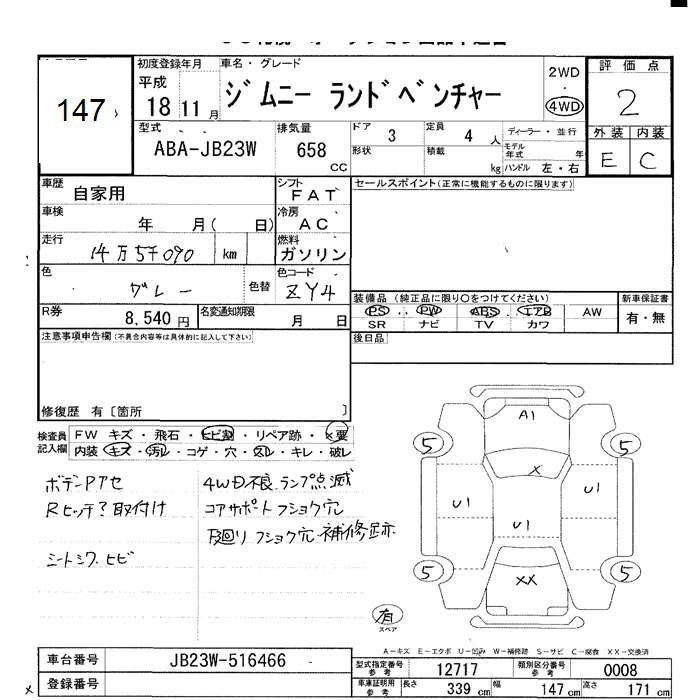 147
初度登録年月
平成
18 11 月
車名・グレード
ジムニー ランドベンチャー
2WD
4WD
評価点
2
外装 内装
E C
型式
ABA-JB23W
排気量
658 CC
ドア 3
定員 4 人
形状
積載 kg
ディーラー・並行
モデル年式 年
ハンドル 左・右
車歴
自家用
シフト
FAT
セールスポイント(正常に機能するものに限ります)
車検
年 月( 日)
冷房
AC
走行
14万5千090 km
燃料
ガソリン
色
グレー
色替
色コード
ZY4
R券
8,540 円
名変通知期限
月 日
装備品 (純正品に限り○をつけてください)
PS PW ABS エアB AW
SR ナビ TV カワ
新車保証書
有・無
注意事項申告欄(不具合内容等は具体的に記入して下さい)
後日品
修復歴 有〔箇所 〕
検査員記入欄
FW キズ・飛石・ヒビ割・リペア跡・×要
内装 キズ・汚レ・コゲ・穴・スレ・キレ・破レ
ボデーPアセ
Rヒッチ?取付け
シートシワ.ヒビ
4WD不良.ランプ点滅
コアサポートフショク穴
下廻りフショク穴.補修跡
A1
5 5
X
U1 U1
U1
5 5
XX
有
スペア
A-キズ E-エクボ U-凹み W-補修跡 S-サビ C-腐食 XX-交換済
車台番号
JB23W-516466
登録番号
型式指定番号 参考
12717
類別区分番号 参考
0008
車庫証明用 参考
長さ 339 cm
幅 147 cm
高さ 171 cm